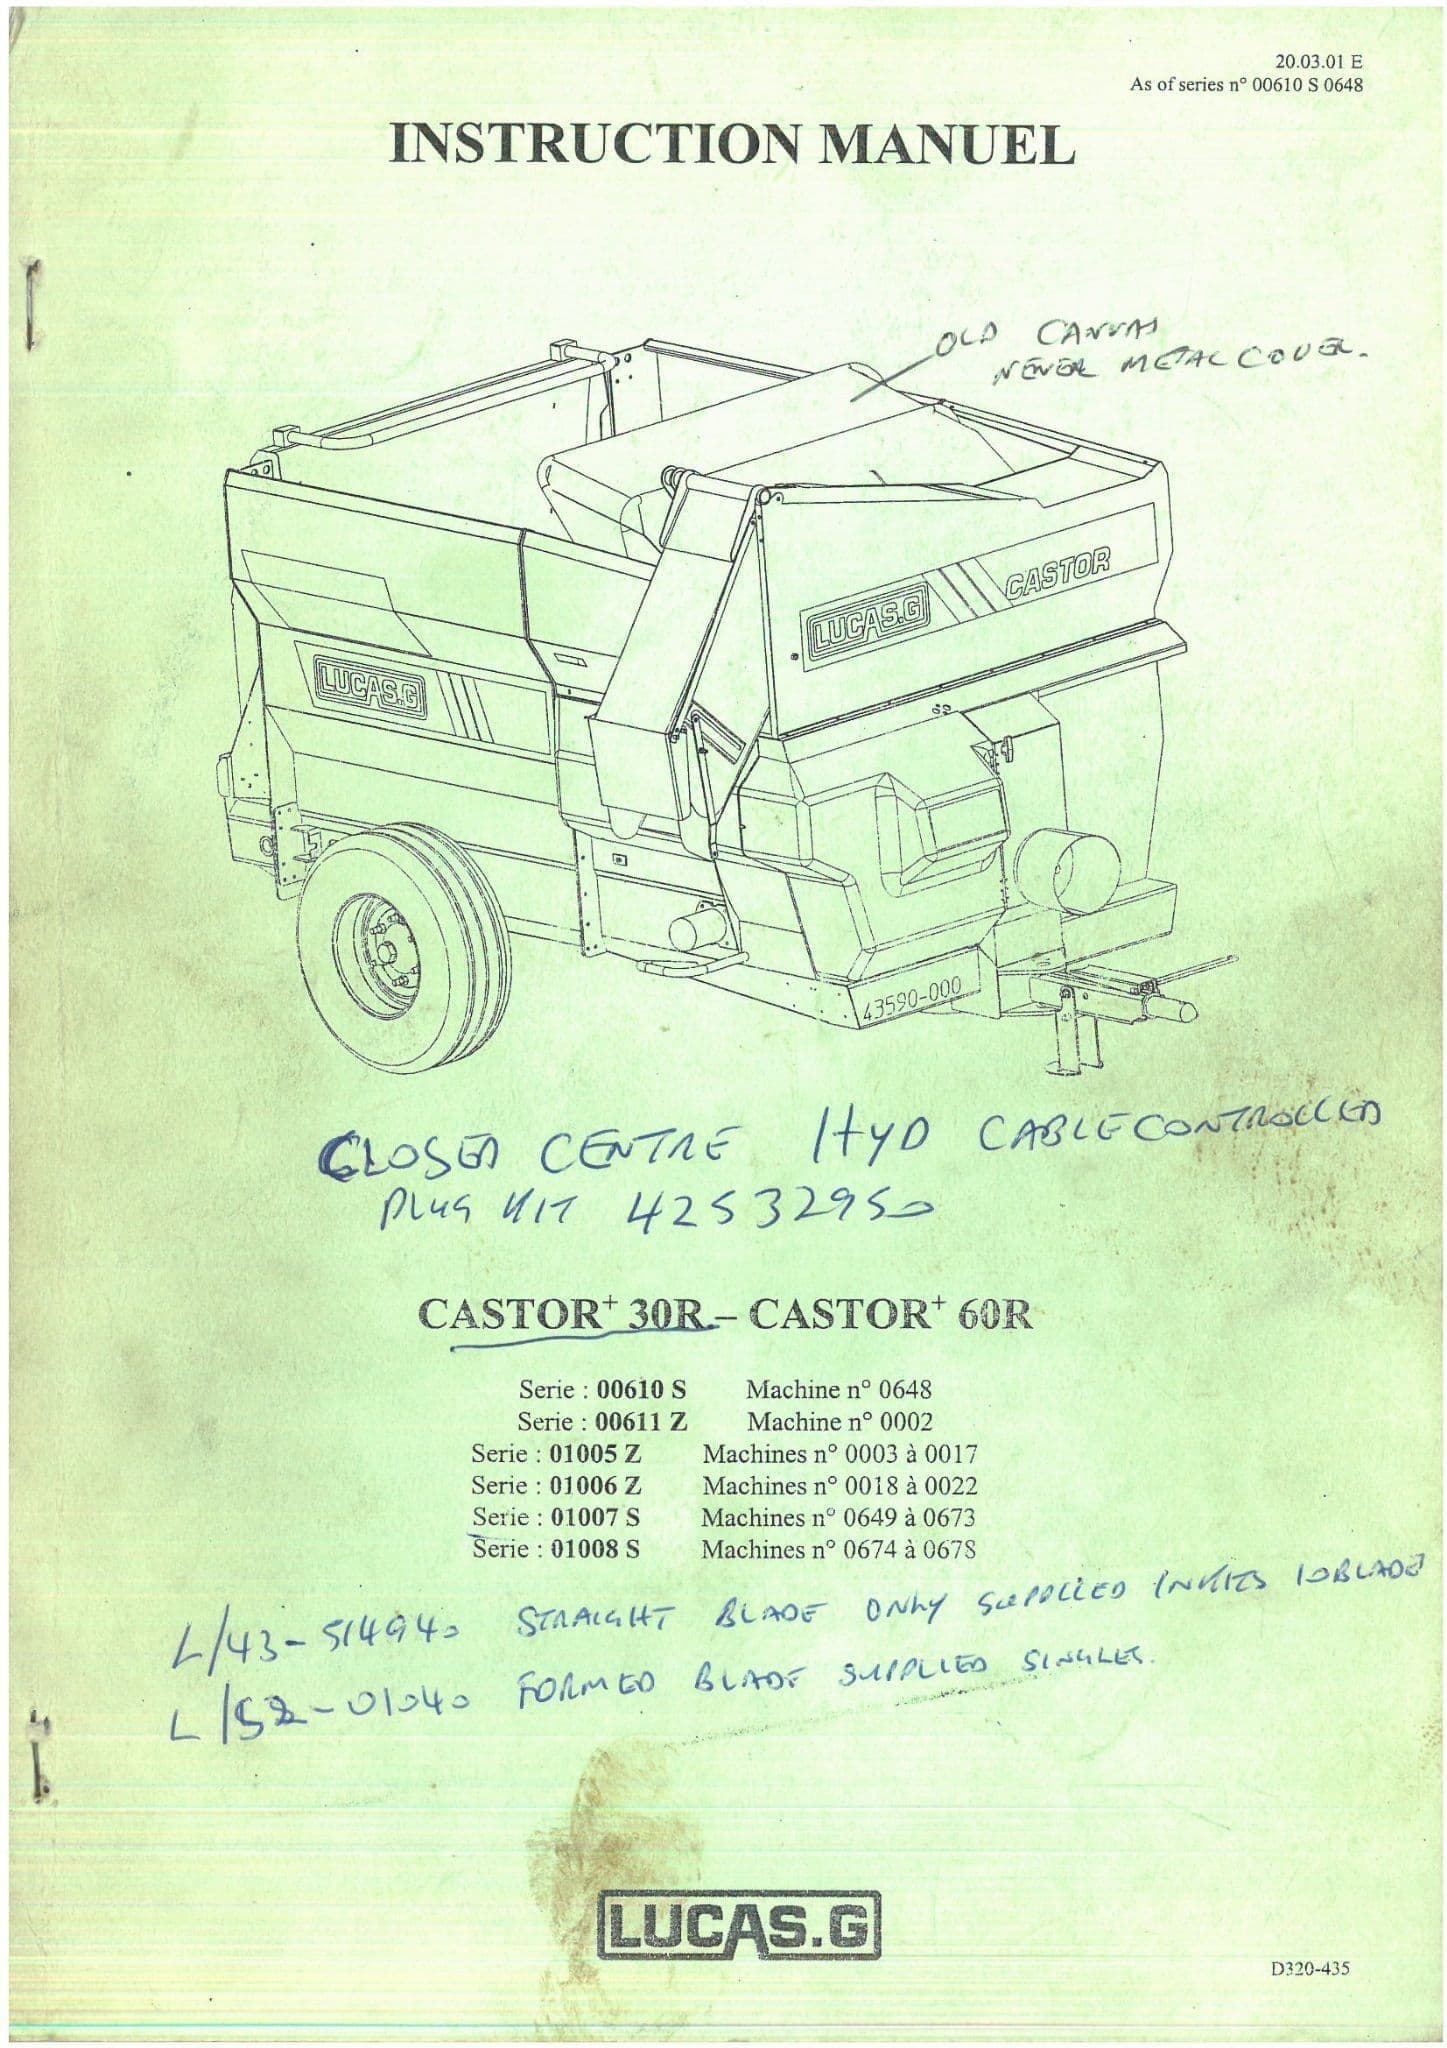 20.03.01 E
As of series n° 00610 S 0648
INSTRUCTION MANUEL
OLD CANVAS
NEVER METAL COVER.
LUCAS.G CASTOR
LUCAS.G
43590-000
CLOSED CENTRE HYD CABLE CONTROLLED
PLUG KIT 42532950
CASTOR+ 30R – CASTOR+ 60R
Serie : 00610 S Machine n° 0648
Serie : 00611 Z Machine n° 0002
Serie : 01005 Z Machines n° 0003 à 0017
Serie : 01006 Z Machines n° 0018 à 0022
Serie : 01007 S Machines n° 0649 à 0673
Serie : 01008 S Machines n° 0674 à 0678
L/43-514940 STRAIGHT BLADE ONLY SUPPLIED IN KITS 10 BLADE
L/52-01040 FORMED BLADE SUPPLIED SINGLES.
LUCAS.G
D320-435